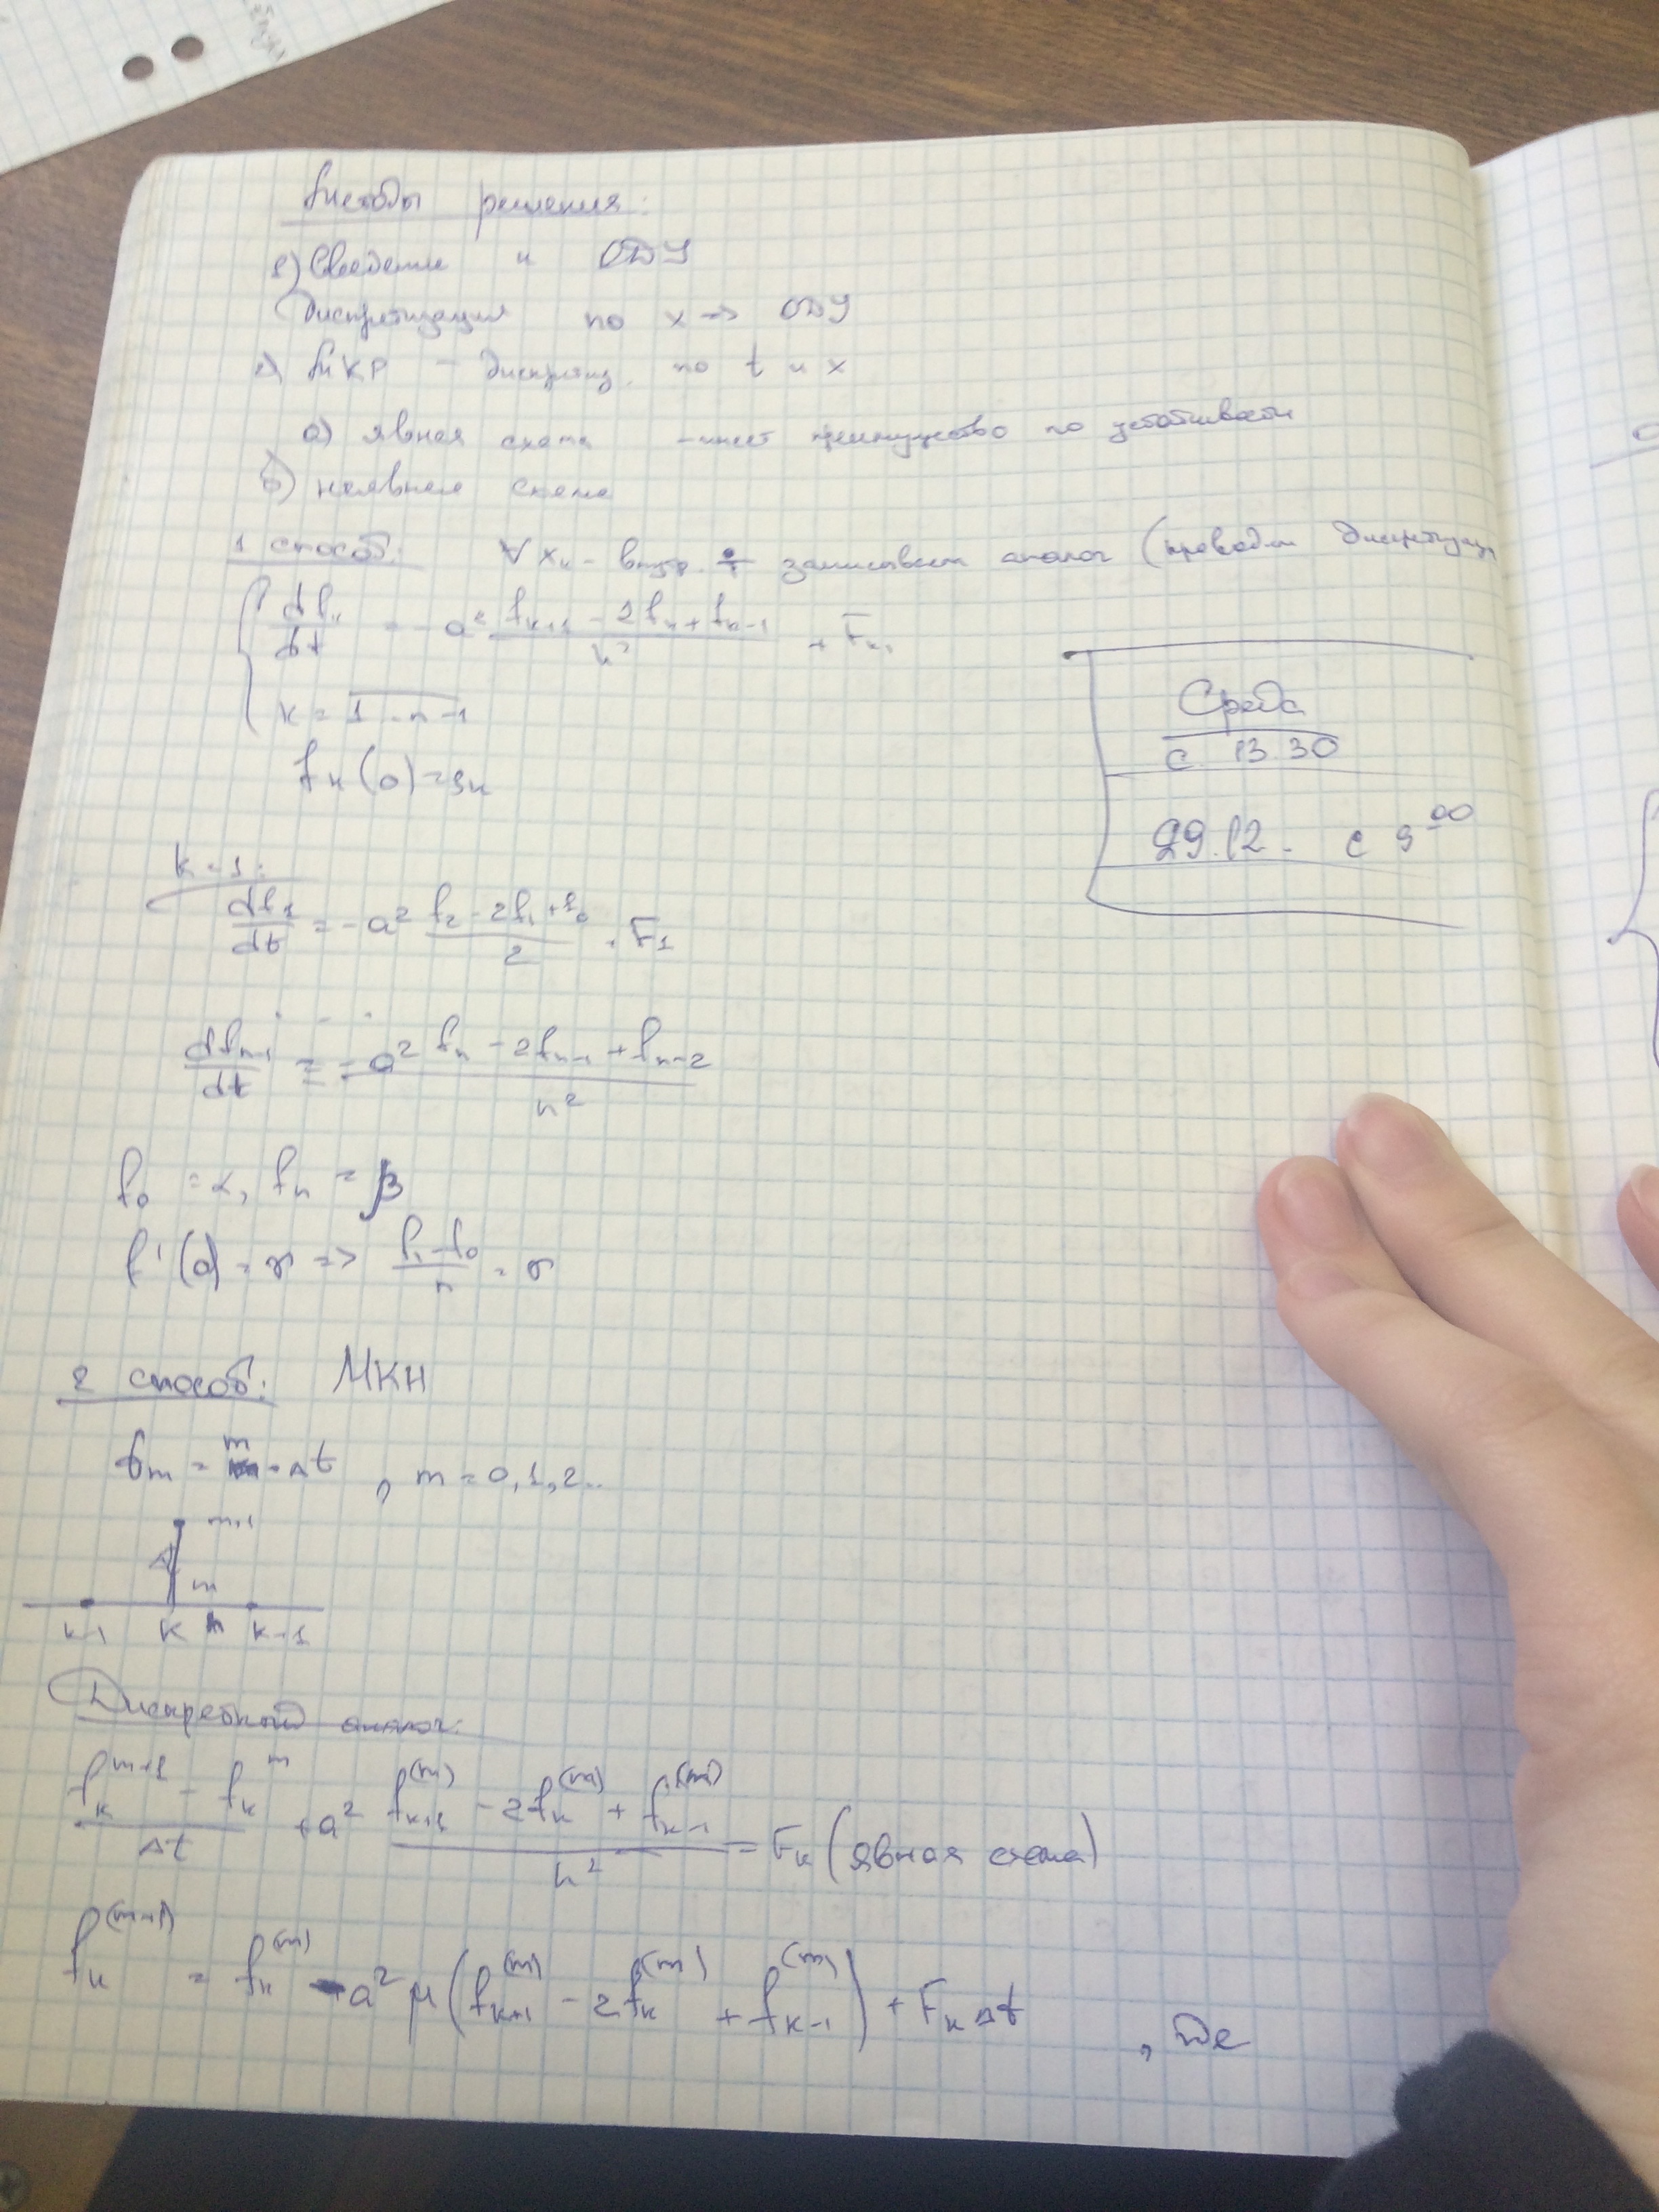 Методы решения:
1) Сведение к ОДУ
Дискретизация по x → ОДУ
2) МКР - дискретиз. по t и x
а) явная схема - имеет преимущество по устойчивости
б) неявная схема
1 способ: ∀ x_k - внутр. записываем аналог (проводим дискретизац
df_k/dt = -a² (f_{k+1} - 2f_k + f_{k-1})/h² + F_k,
k = 1..n-1
f_k(0) = g_k
Среда
с 13.30
29.12. с 9⁰⁰
k=1:
df_1/dt = -a² (f_2 - 2f_1 + f_0)/2 + F_1
. . .
df_{n-1}/dt = -a² (f_n - 2f_{n-1} + f_{n-2})/h²
f_0 = α, f_n = β
f'(0) = γ => (f_1 - f_0)/h = γ
2 способ: МКН
t_m = m·Δt, m = 0,1,2..
m+1
m
k-1 k k-1
Дискретный аналог:
(f_k^{m+1} - f_k^m)/Δt + a² (f_{k+1}^{(m)} - 2f_k^{(m)} + f_{k-1}^{(m)})/h² = F_k (явная схема)
f_k^{(m+1)} = f_k^{(m)} - a² μ (f_{k+1}^{(m)} - 2f_k^{(m)} + f_{k-1}^{(m)}) + F_k Δt , где